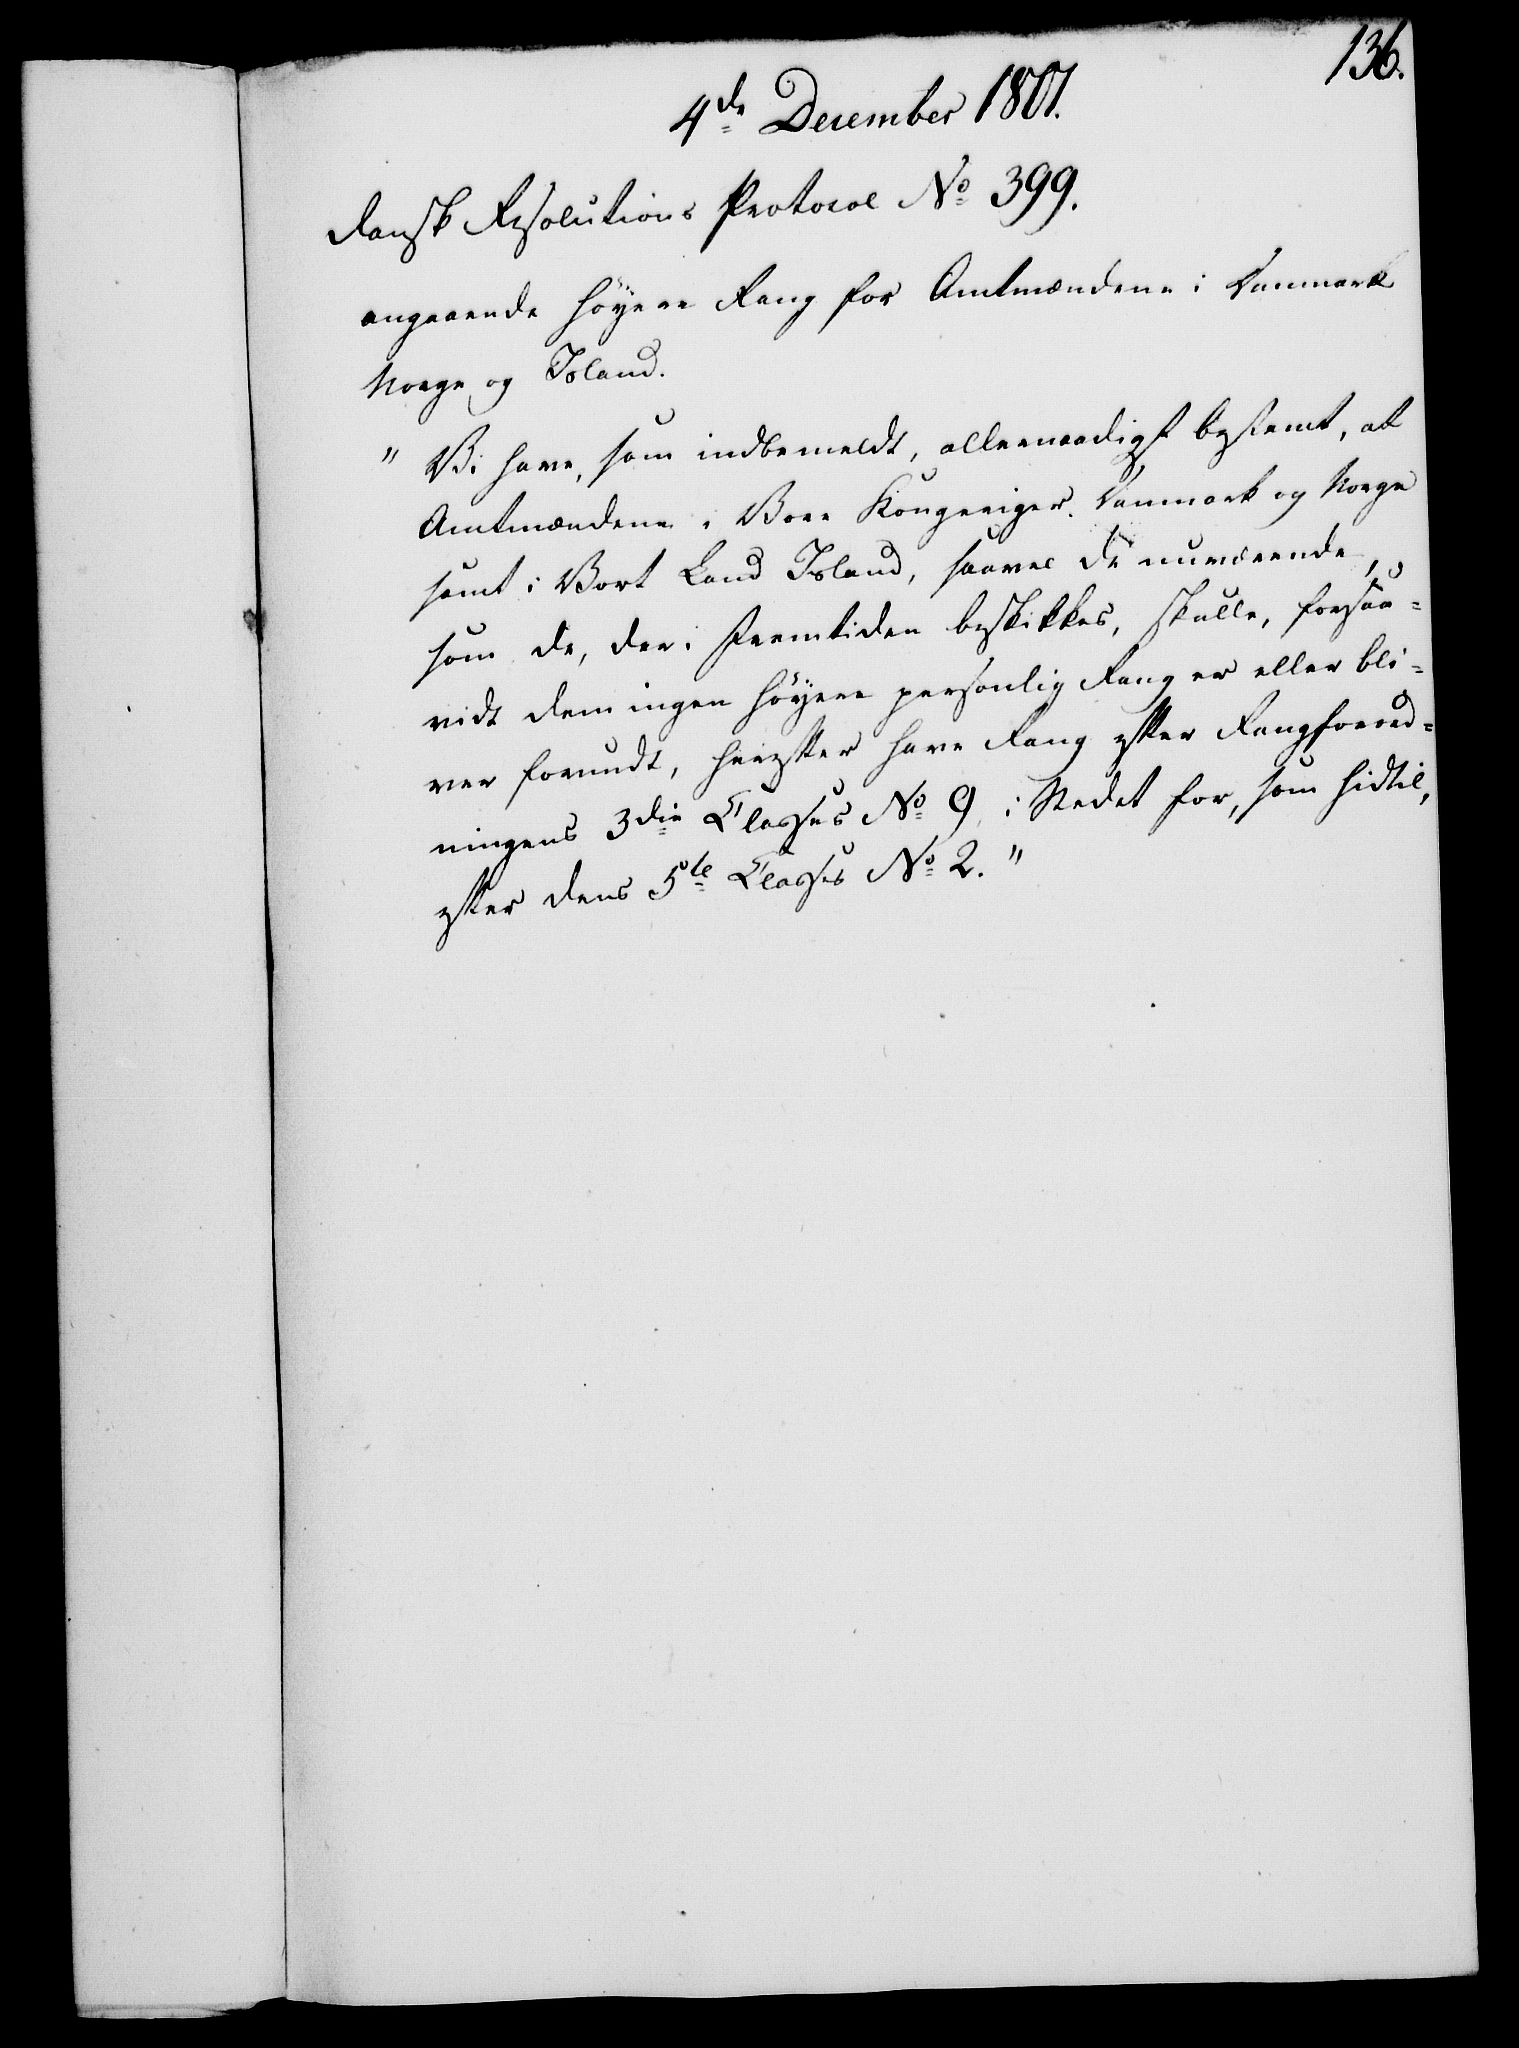 136.
4de December 1801.
Dansk Resolutions Protocol No 399.
angaaende høyere Rang for Amtmændene i Danmark
Norge og Island.
" Vi have, som indbemeldt, allernaadigst bestemt, at
Amtmændene i Vore Kongeriger Danmark og Norge
samt i Vort Land Island, saavel de nuværende,
som de, der i Fremtiden beskikkes, skulle, forsaa=
vidt dem ingen høyere personlig Rang er eller bli=
ver forundt, herefter have Rang efter Rangforord=
ningens 3die Classes No 9, i Stedet for, som hidtil,
efter dens 5te Classes No 2."